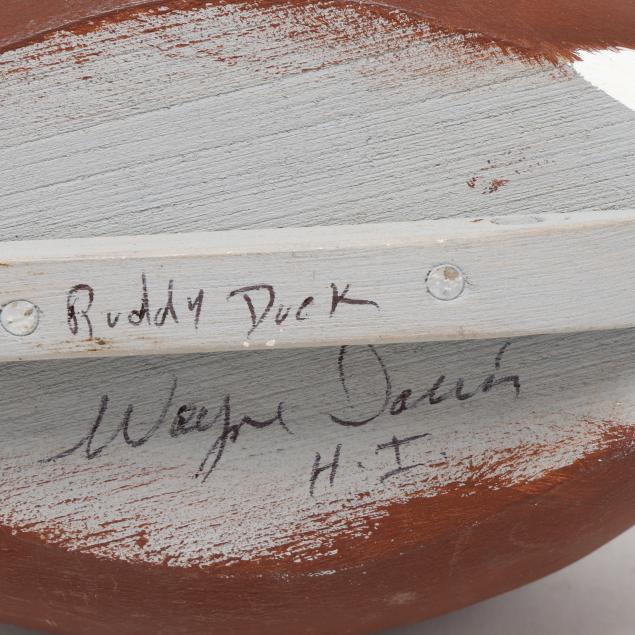 Ruddy Duck
Wayne Davis
H.I.